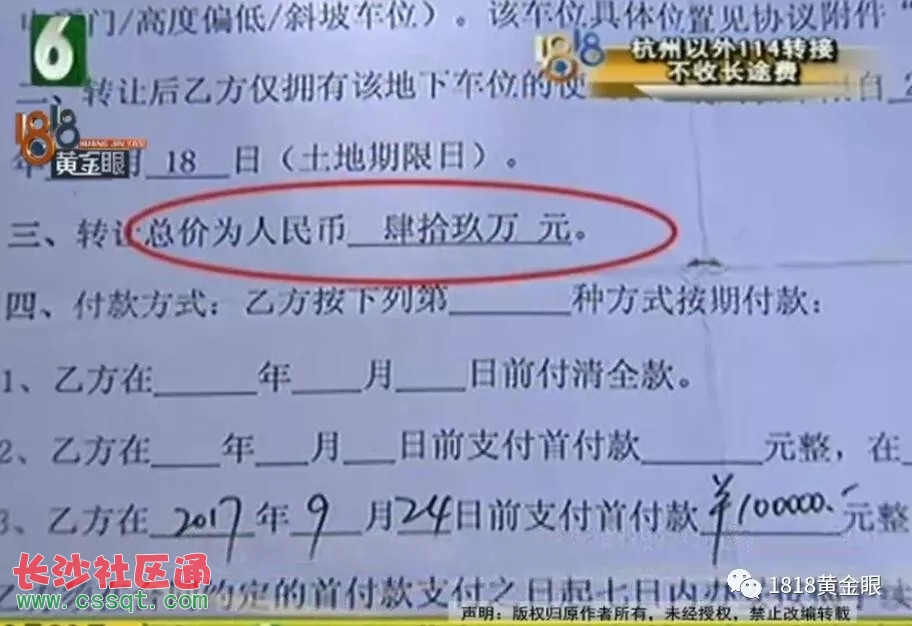 门/高度偏低/斜坡车位）。该车位具体位置见协议附件“
6
1818
杭州以外114转接
不收长途费
二、转让后乙方仅拥有该地下车位的使
自 2
1818
HUANG JIN YAN
黄金眼
年 月 18 日（土地期限日）。
三、转让总价为人民币 肆拾玖万 元。
四、付款方式：乙方按下列第______种方式按期付款：
1、乙方在_____年____月____日前付清全款。
2、乙方在____年___月___日前支付首付款______元整，在
3、乙方在 2017 年 9 月 24 日前支付首付款 ¥100000.- 元整
长沙社区通
www.cssqt.com
约定的首付款支付之日起七日内办
1818黄金眼
声明：版权归原作者所有，未经授权，禁止改编转载